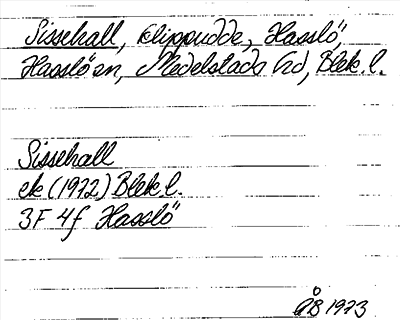 Sissehall, klippudde, Hasslö,
Hasslöen, Medelstads hd, Blek. l.
Sissehall
ek (1972) Blek. l.
3F 4f Hasslö
ÅB 1973